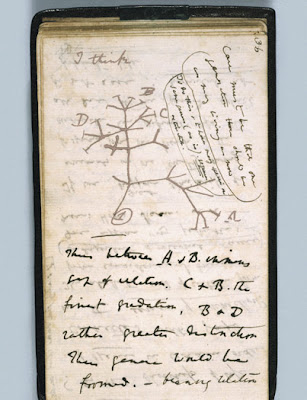 I think
36
Case must be that one
generation then should be
as many living as now
To do this & to have many species in
same genus (as is) requires
extinction.
D
B
C
A
1
Thus between A & B. immens
gap of relation. C & B. the
finest gradation, B & D
rather greater distinction
Thus genera would be
formed. — bearing relation